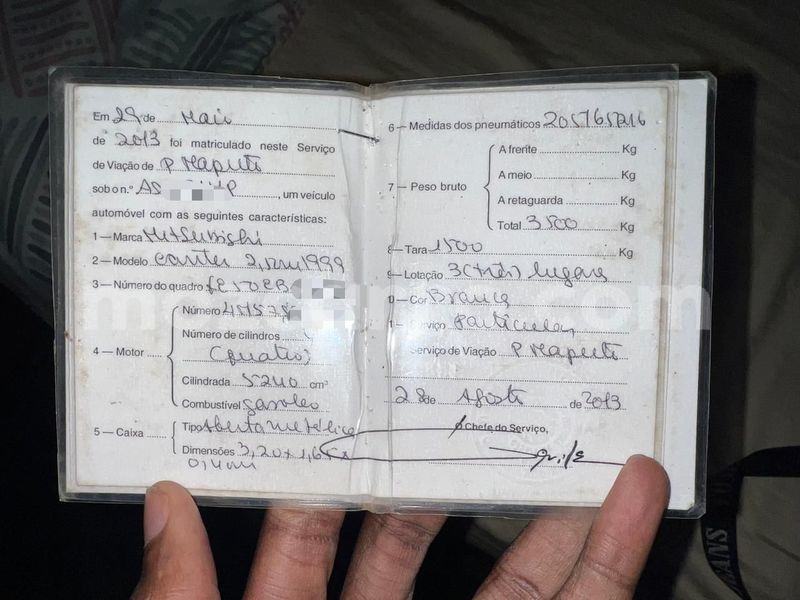 Em 29 de Maio
de 2013 foi matriculado neste Serviço
de Viação de P Maputo
sob o n.º AS P, um veículo
automóvel com as seguintes características:
1 — Marca Mitsubishi
2 — Modelo canter 1999
3 — Número do quadro
4 — Motor
Número
Número de cilindros
(quatro)
Cilindrada 5240 cm³
Combustível Gasoleo
5 — Caixa
Tipo Aberta metálica
Dimensões 3,20x1,6
6 — Medidas dos pneumáticos 205/65/R16
7 — Peso bruto
A frente Kg
A meio Kg
A retaguarda Kg
Total 3500 Kg
8 — Tara 1500 Kg
9 — Lotação 3(três) lugares
10 — Cor Branca
Serviço Particular
Serviço de Viação P Maputo
28 de Agosto de 2013
O Chefe do Serviço,